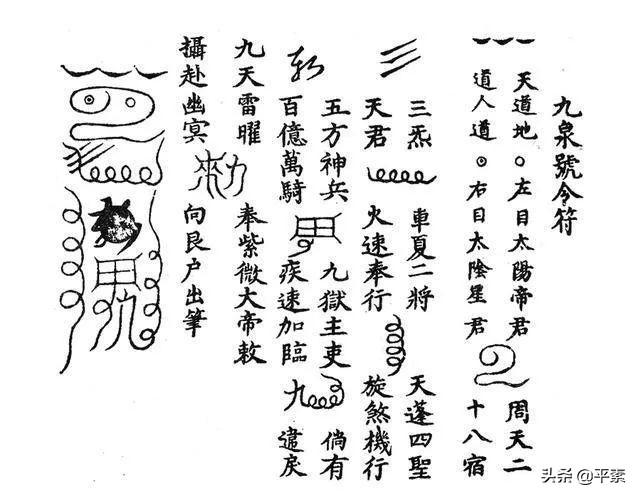 九泉號令符
天道地 左目太陽帝君 周天二
道人道 右目太陰星君 十八宿
三炁 車夏二將 天蓬四聖
天君 火速奉行 旋煞機行
五方神兵 九獄主吏 倘有
百億萬騎 疾速加臨 九 違戾
九天雷曜 奉紫微大帝敕
攝赴幽冥 向艮户出筆
头条 @平素